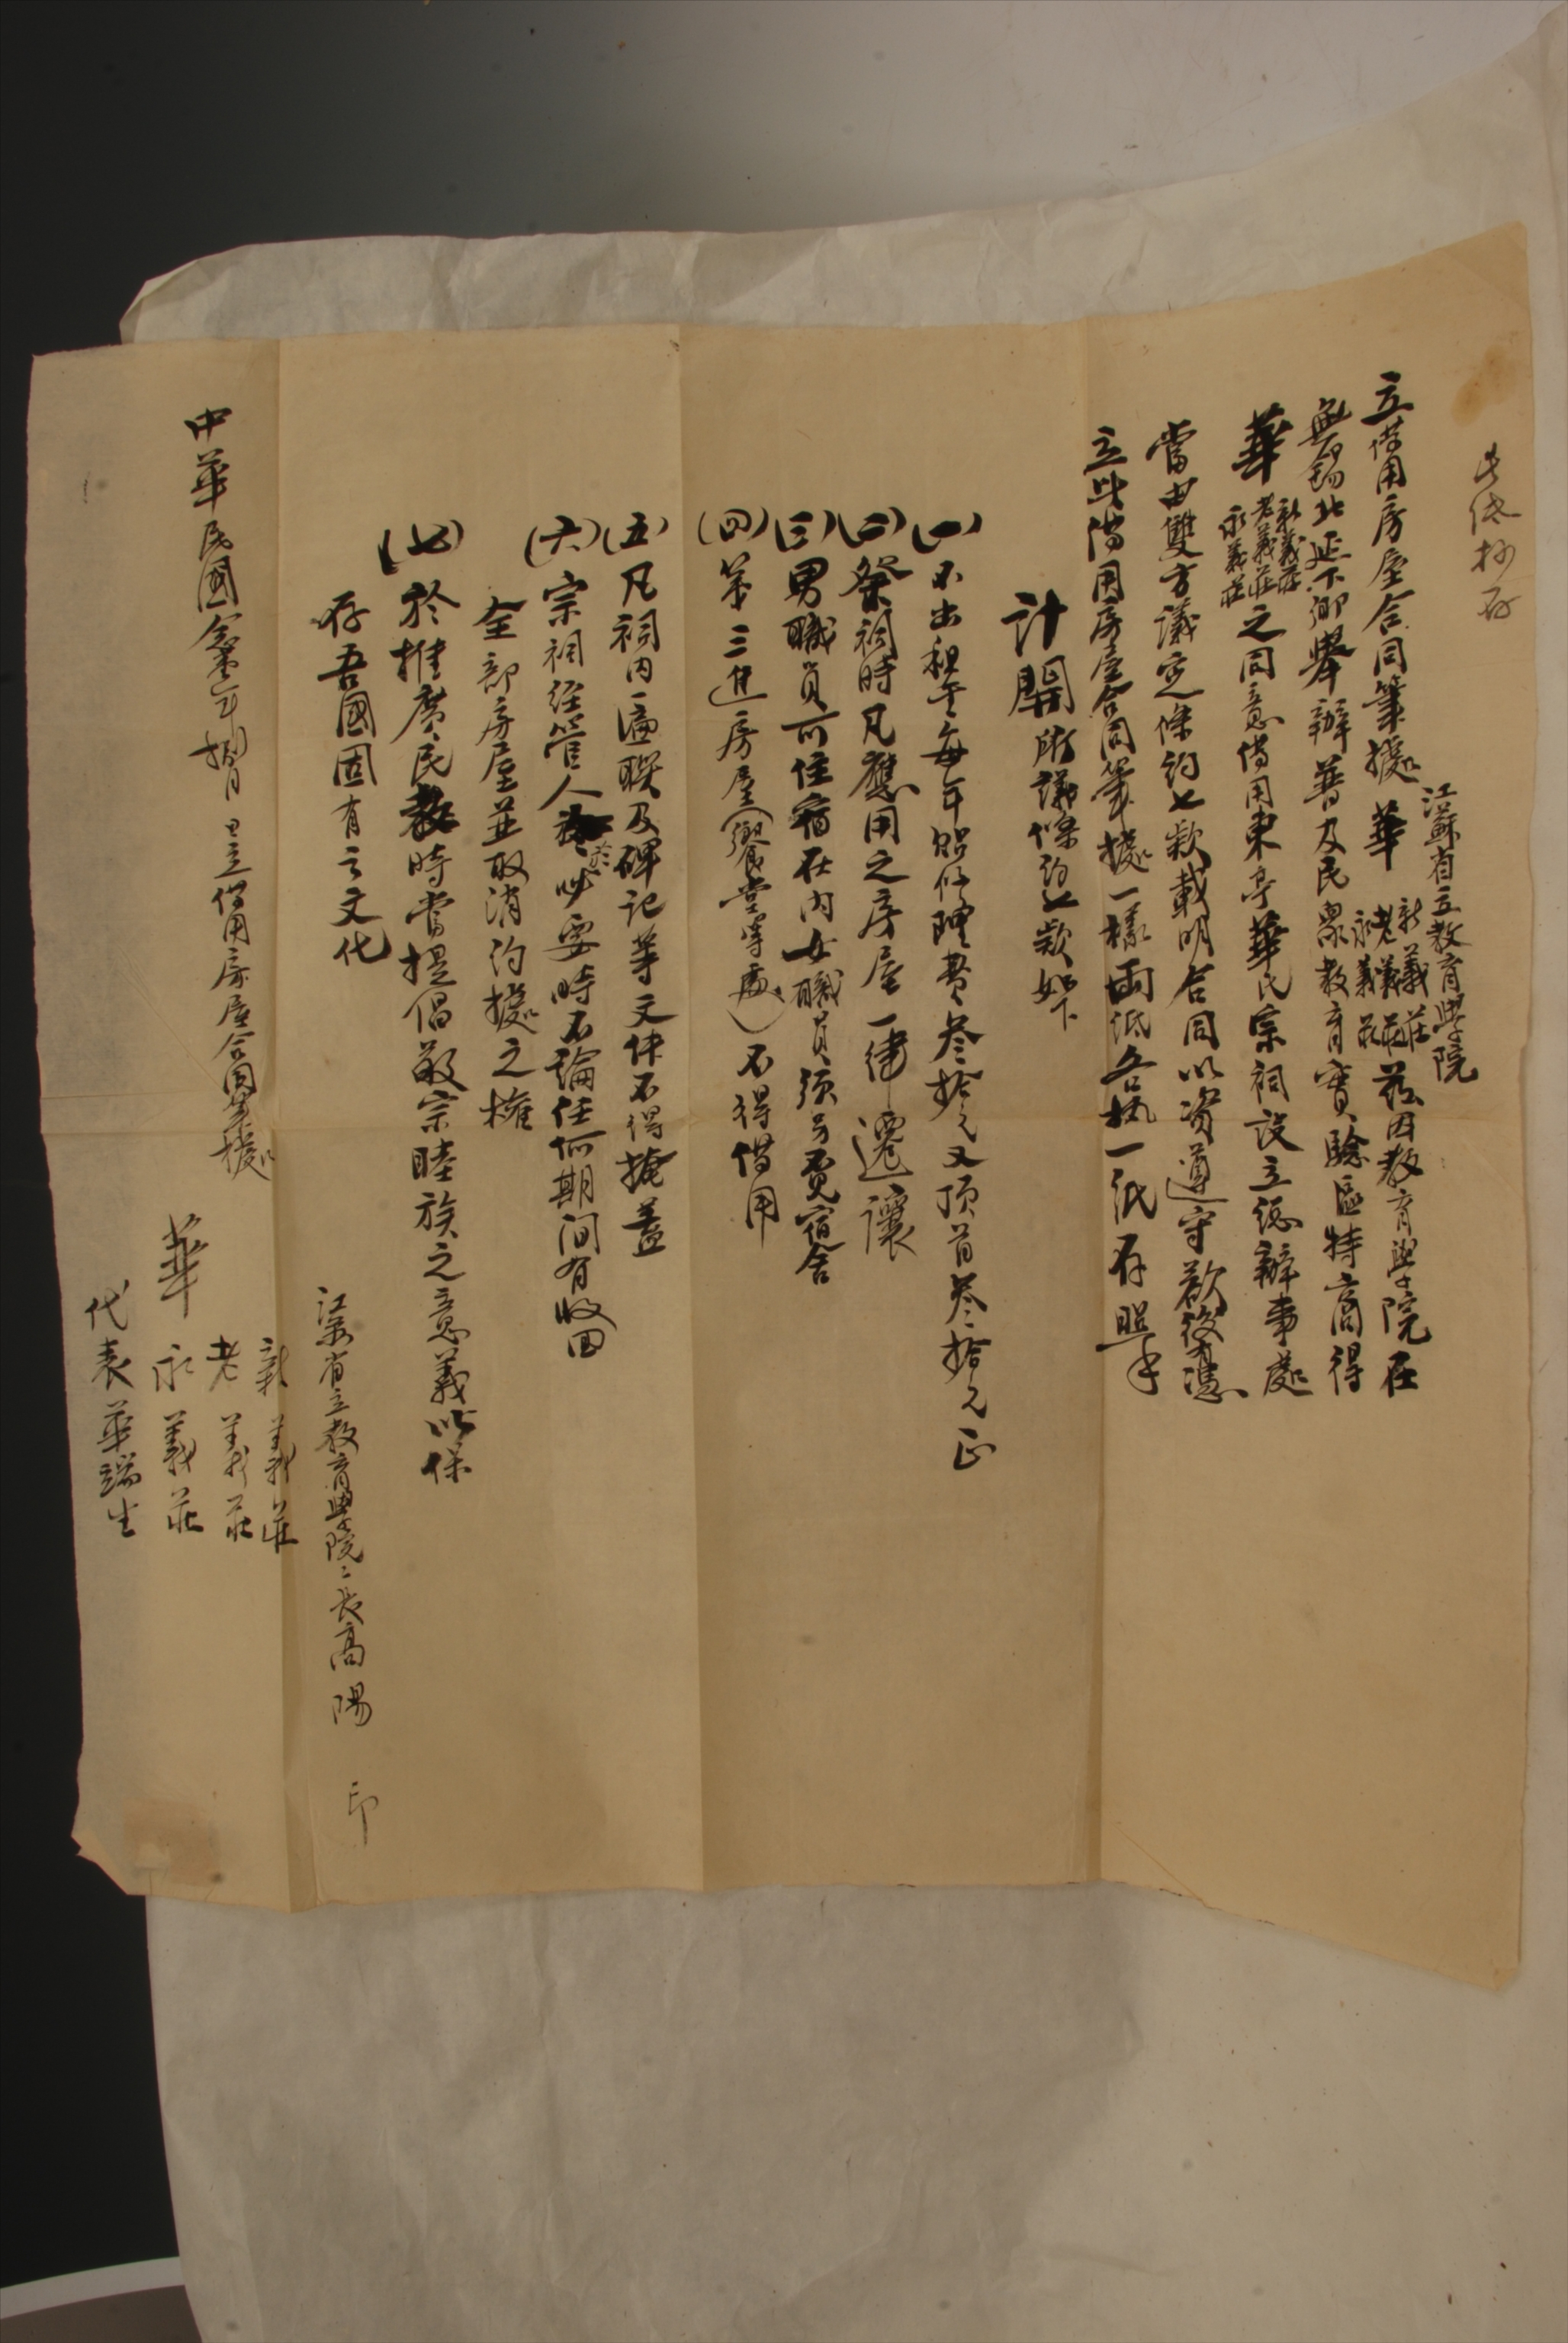 此底抄存
立借用房屋合同筆據 江蘇省立教育學院 華 新義莊 老義莊 永義莊 茲因教育學院在
無錫北延下鄉舉辦普及民眾教育實驗區特商得
華 新義莊 老義莊 永義莊 之同意借用東亭華氏宗祠設立總辦事處
當由雙方議定條約七款載明合同以資遵守欲後有憑
立此借用房屋合同筆據一樣兩紙各執一紙存照
計開所議條約七款如下
(一)不出租金每年貼修理費叁拾元又頂首叁拾元正
(二)祭祠時凡應用之房屋一律遷讓
(三)男職員可住宿在內女職員須另覓宿舍
(四)第三進房屋(饗堂等處)不得借用
(五)凡祠內匾聯及碑記等文件不得掩蓋
(六)宗祠經管人於必要時不論任何期间有收回
全部房屋並取消約據之權
(七)於推廣民教時當提倡敬宗睦族之意義以保
存吾國固有之文化
江蘇省立教育學院〻長高陽 印
中華民國 年 月 日立借用房屋合同筆據
華 新義莊 老義莊 永義莊
代表華端生